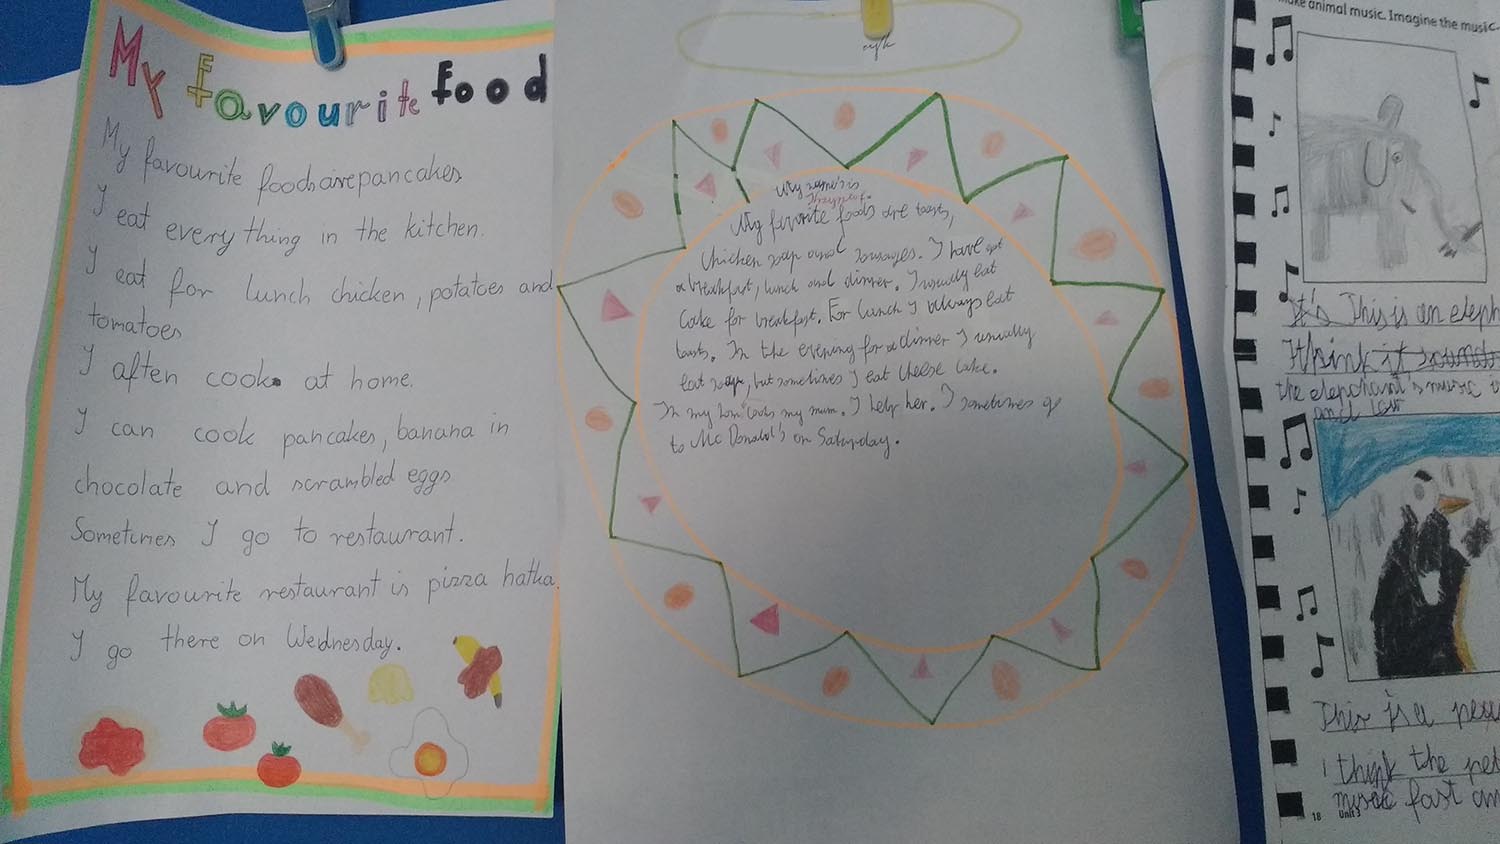 My favourite food
My favourite foods are pancakes
I eat everything in the kitchen.
I eat for lunch chicken, potatoes and
tomatoes
I aften cook at home.
I can cook pancakes, banana in
chocolate and scrambled eggs
Sometimes I go to restaurant.
My favourite restaurant is pizza hatka.
I go there on Wednesday.
My name is
My favorite foods are toasts,
Chicken soup and sausages. I have got
a breakfast, lunch and dinner. I usually eat
Cake for breakfast. For lunch I always eat
toasts. In the evening for a dinner I usually
eat soup, but sometimes I eat cheese cake.
In my home cooks my mum. I help her. I sometimes go
to Mc Donald's on Saturday.
make animal music. Imagine the music
It's This is an eleph
I think it sounds
the elephant's music
and low
This is a
I think the
music fast an
18 Unit 3